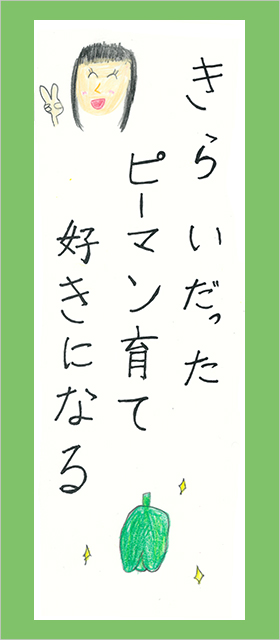 きらいだった
ピーマン育て
好きになる